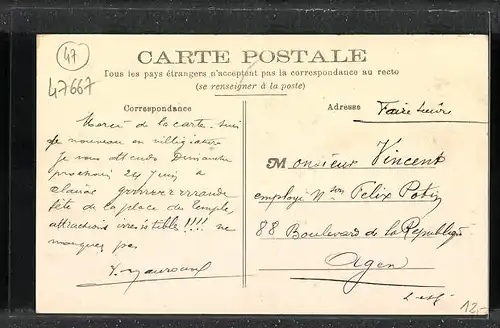 47
47667
CARTE POSTALE
Tous les pays étrangers n'acceptent pas la correspondance au recto
(se renseigner à la poste)
Correspondance
Adresse
Faire suivre
Merci de la carte. suis
de nouveau en villégiature
Je vous attends Dimanche
prochain 24 Juin a
grrrrrrrrrande
fête de la place du Temple,
attractions irrésistible !!!! ne
manquez pas
Monsieur Vincent
employé Nson Félix Potin
88 Boulevard de la République
Agen
L-et-G
12,-